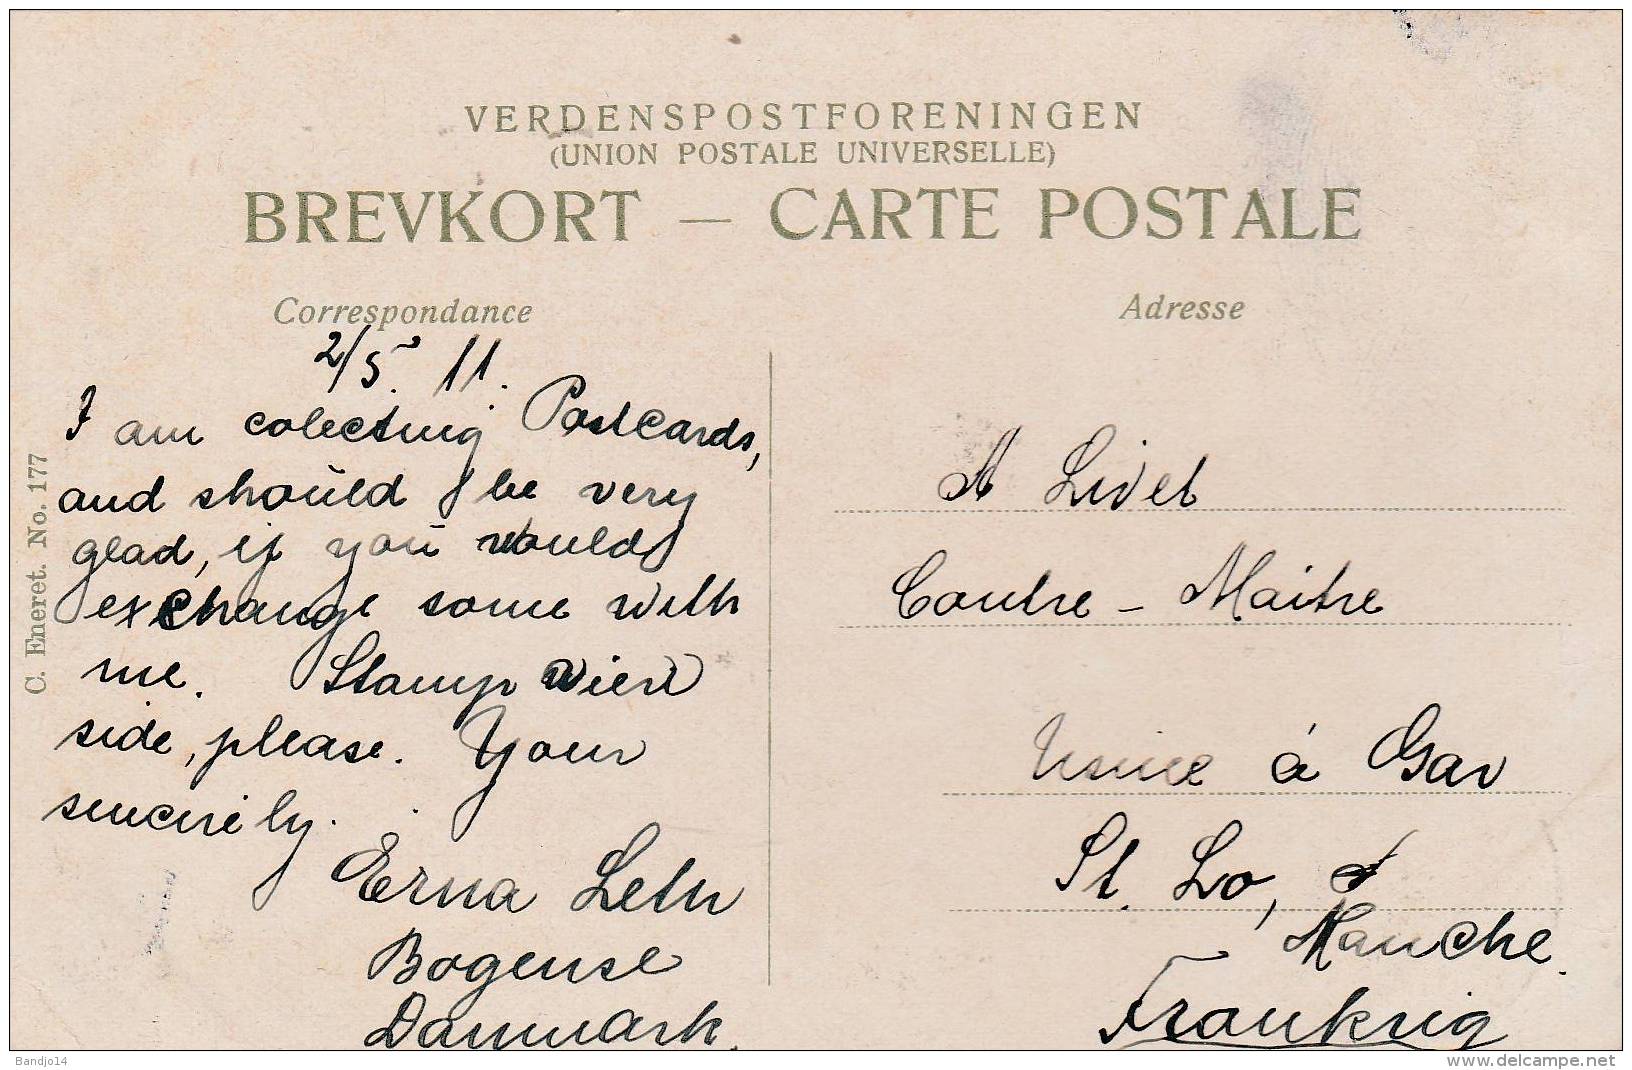 VERDENSPOSTFORENINGEN
(UNION POSTALE UNIVERSELLE)
BREVKORT — CARTE POSTALE
Correspondance
2/5. 11.
I am colecting Postcards,
and should I be very
glad, if you would
exchange some with
me. Stamp wiew
side, please. Your
sincirely.
Erna Leth
Bogense
Danmark.
C. Eneret. No. 177
Adresse
A Livet
Contre - Maitre
Usine á Gav
St. Lo,
Manche.
Frankrig
Bandjo14
www.delcampe.net